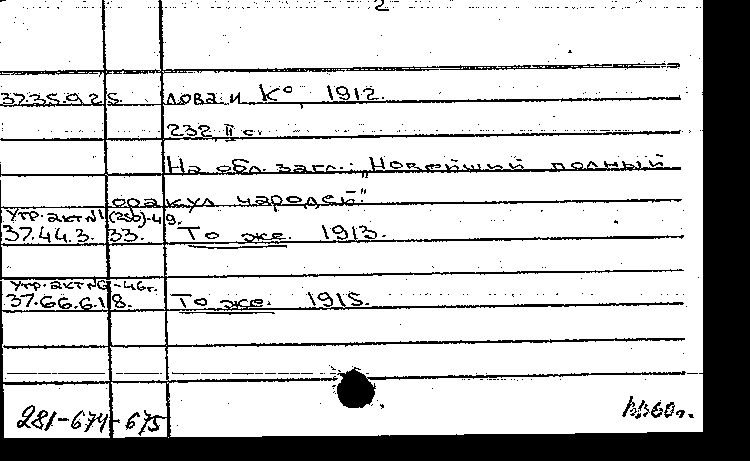 2
37.35.9.25. лова и К°, 1912.
232, II с.
На обл. загл.: „Новейший полный
оракул чародей."
Утр. акт №1 (256)-49.
37.44.3.33. То же. 1913.
Утр. акт №6-46г.
37.66.6.18. То же. 1915.
281-674-675